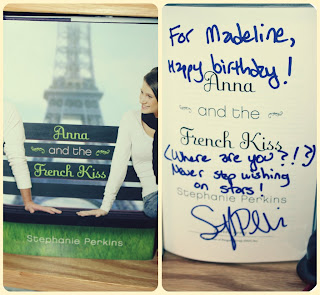 Anna
and the
French Kiss
Stephanie Perkins
For Madeline,
Happy birthday!
Anna
and the
French Kiss
(Where are you?!?)
Never stop wishing
on stars!
Stephanie Perkins